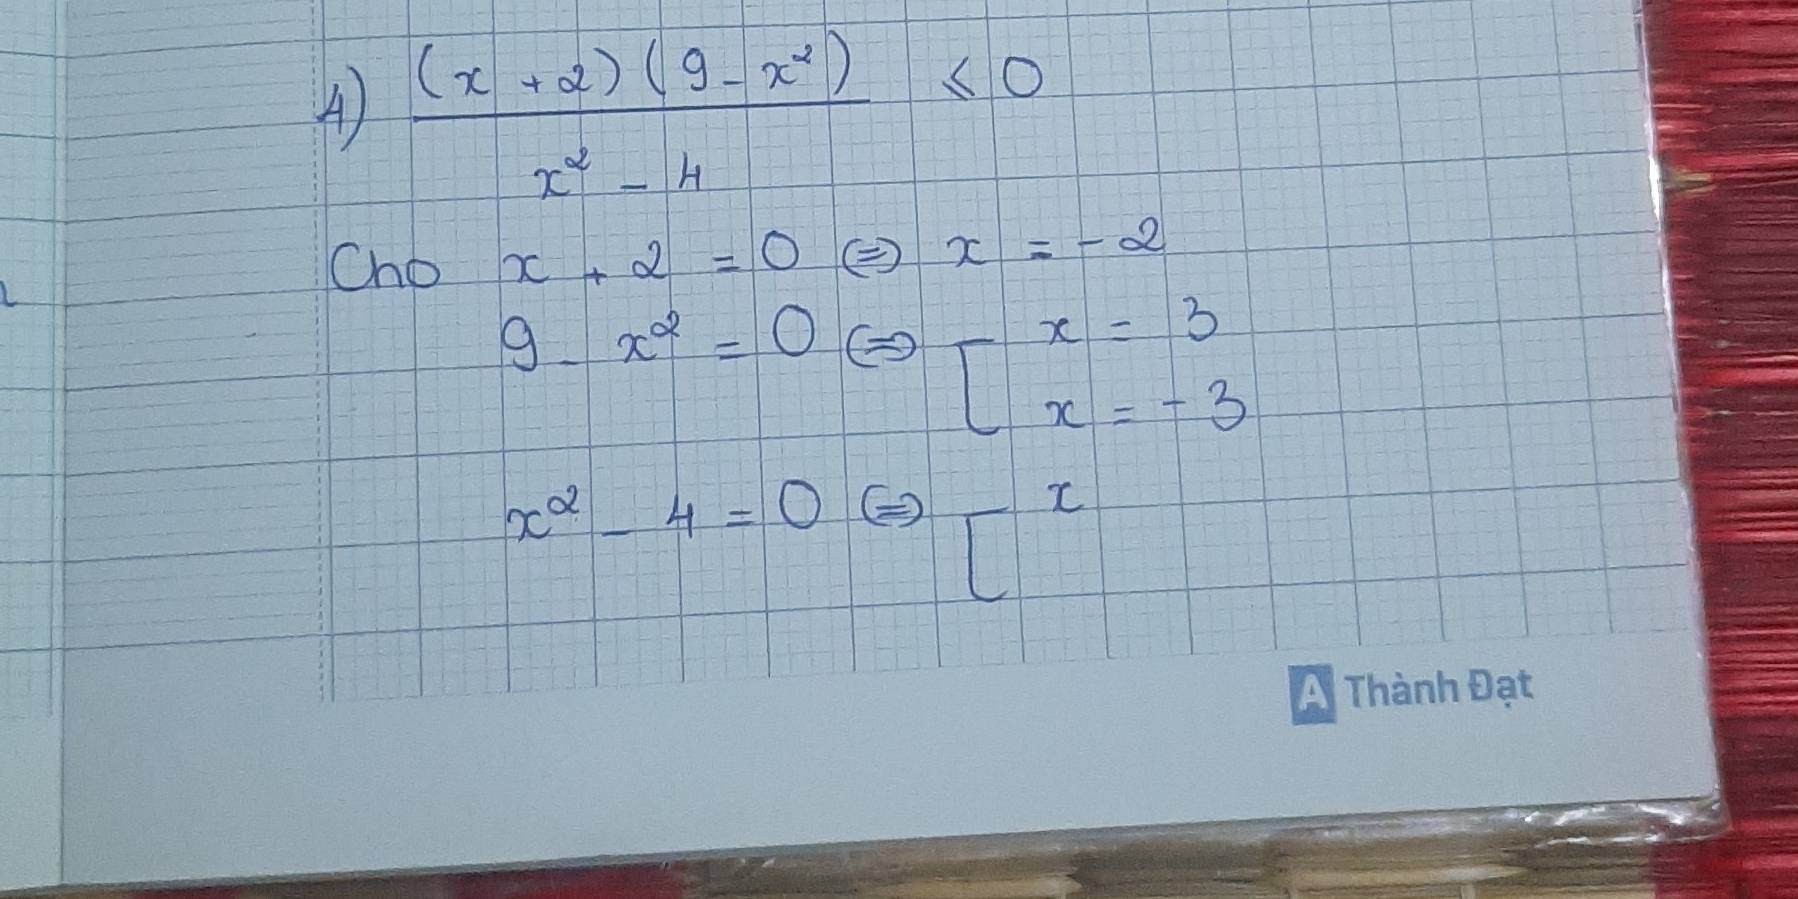 4) (x + 2)(9 - x²) ≤ 0
x² - 4
Cho x + 2 = 0 ⇔ x = -2
9 - x² = 0 ⇔ [ x = 3
x = -3
x² - 4 = 0 ⇔ [ x
A Thành Đạt